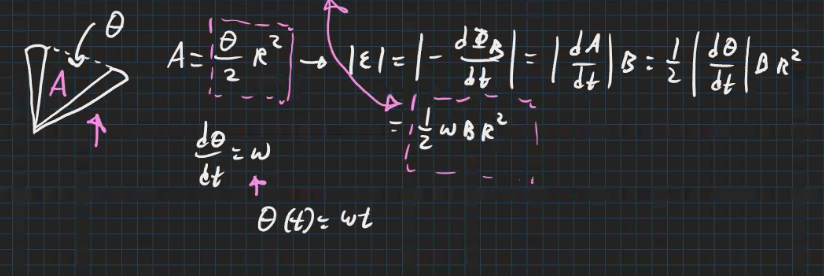 θ
A
A = θ/2 R² → |ε| = |- dΦ_B/dt| = |dA/dt| B = 1/2 |dθ/dt| B R²
= 1/2 ω B R²
dθ/dt = ω
θ(t) = ωt